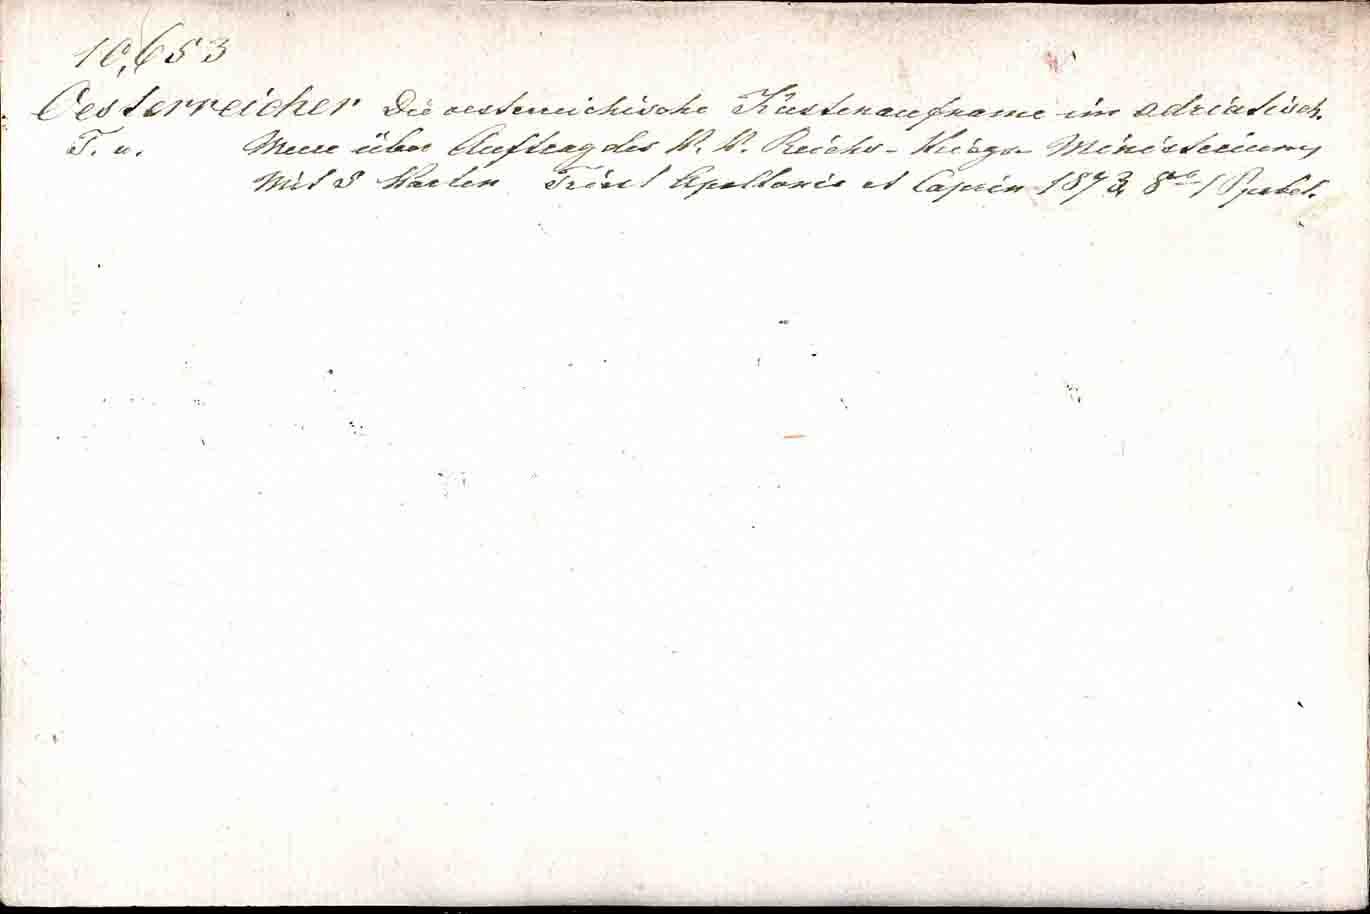 10,653
Oesterreicher Die oesterreichische Küstenaufname im adriatisch.
T. v. Meere über Auftrag des K. K. Reichs-Kriegs-Ministeriums
Mit 3 Karten Triest Apollonio et Caprin 1873, 8vo 1